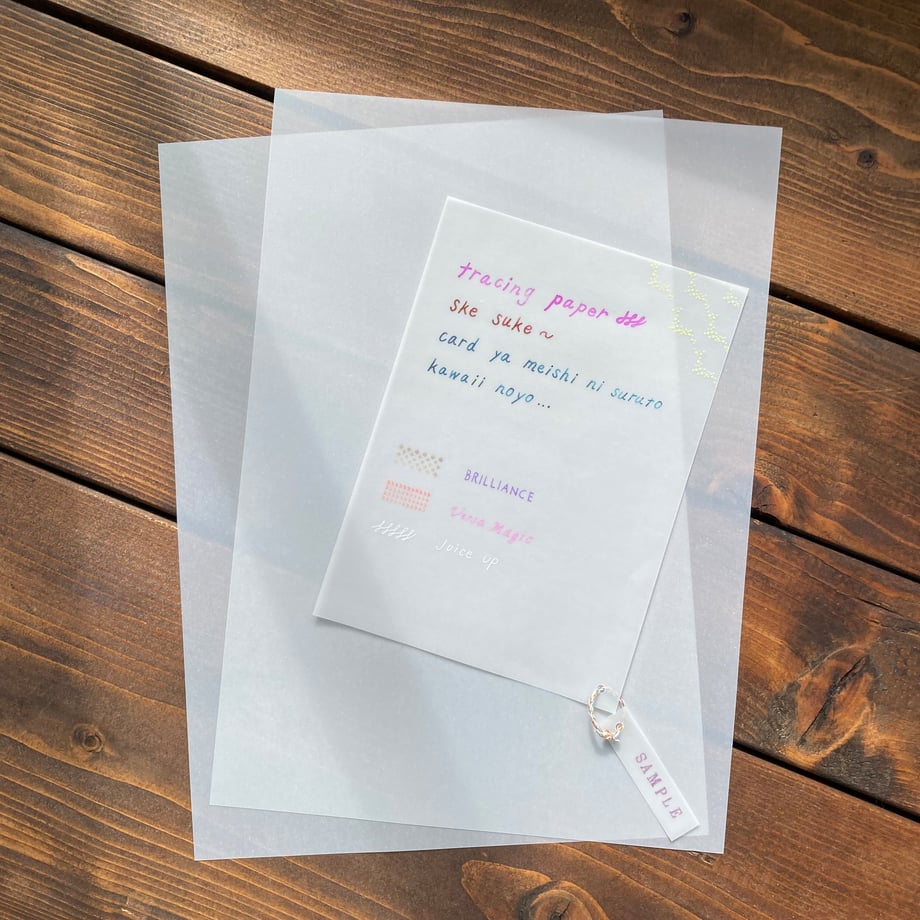 tracing paper
ske suke~
card ya meishi ni suruto
kawaii noyo...
BRILLIANCE
Versa Magic
Juice up
SAMPLE